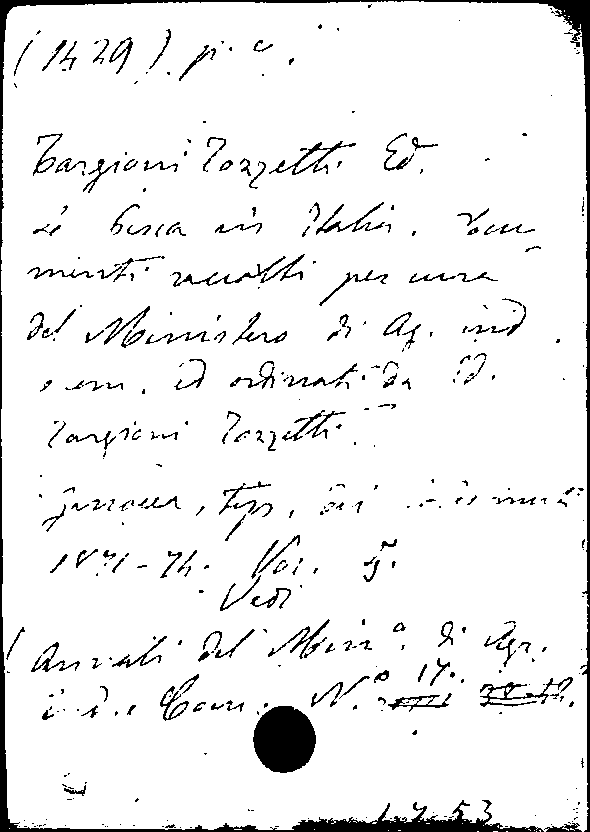 (1429) p. c.
Targioni Tozzetti Ed.
La Pesca in Italia. Docu-
menti raccolti per cura
del Ministero di Ag. ind
e com. ed ordinati da Ed.
Targioni Tozzetti.
Genova, tip,
1871-74. Vol. 5.
Vedi
(Annali del Min.º di Agr.
ind. e Com. N.º 17.
1 7 53